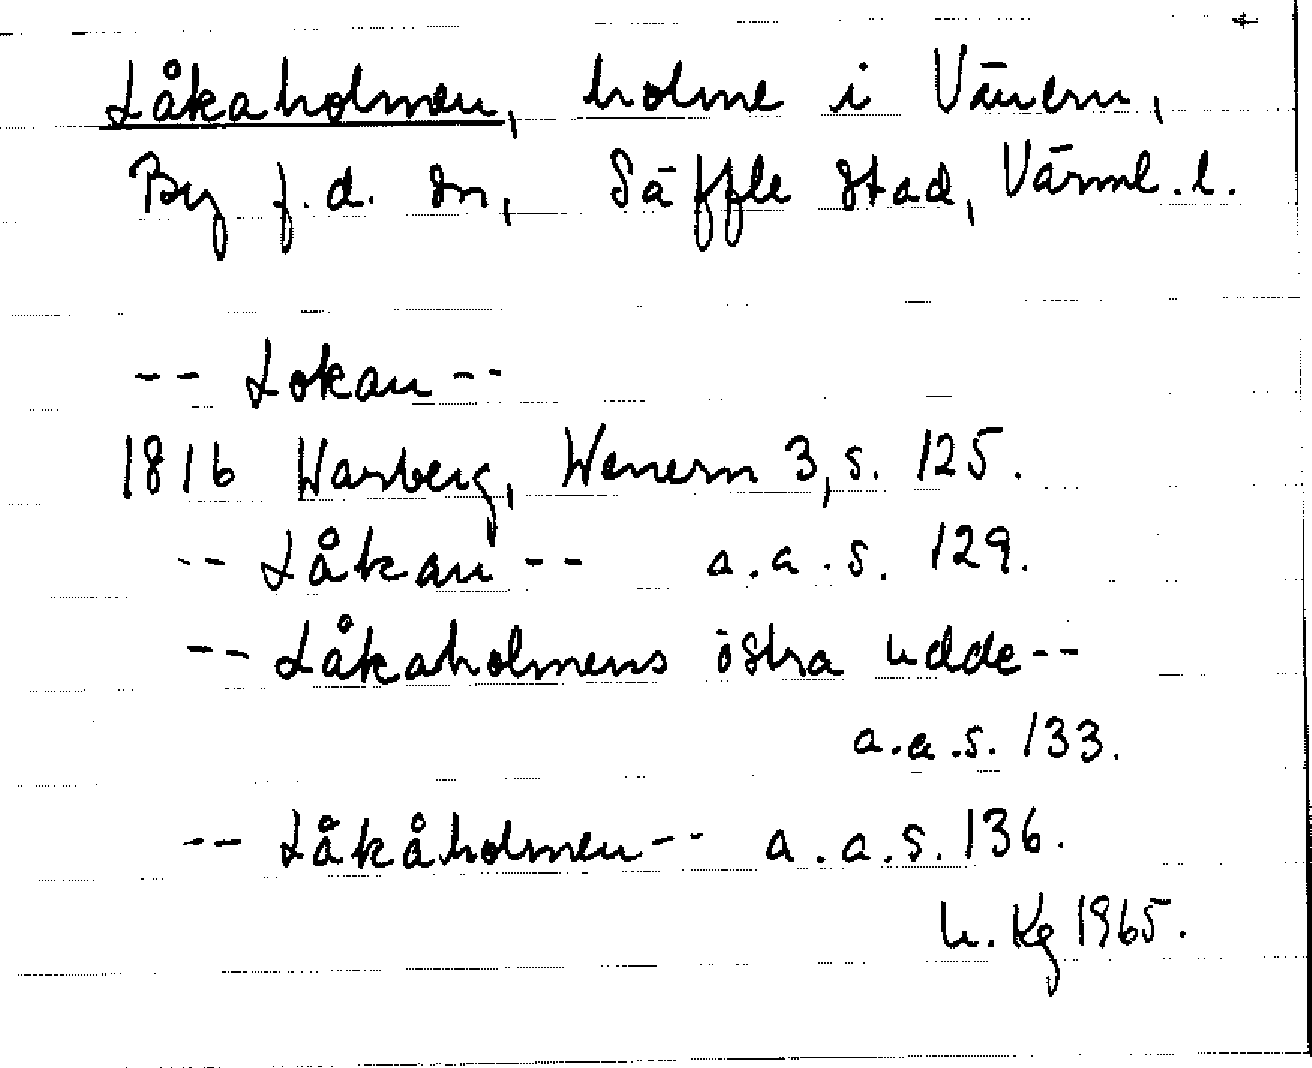 Låkaholmen, holme i Vänern,
By f.d. sn, Säffle stad, Värml. l.
-- Lokan --
1816 Warberg, Wenern 3, s. 125.
-- Låkan -- a.a. s. 129.
-- Låkaholmens östra udde --
a.a. s. 133.
-- Låkåholmen -- a.a. s. 136.
U. Kg 1965.